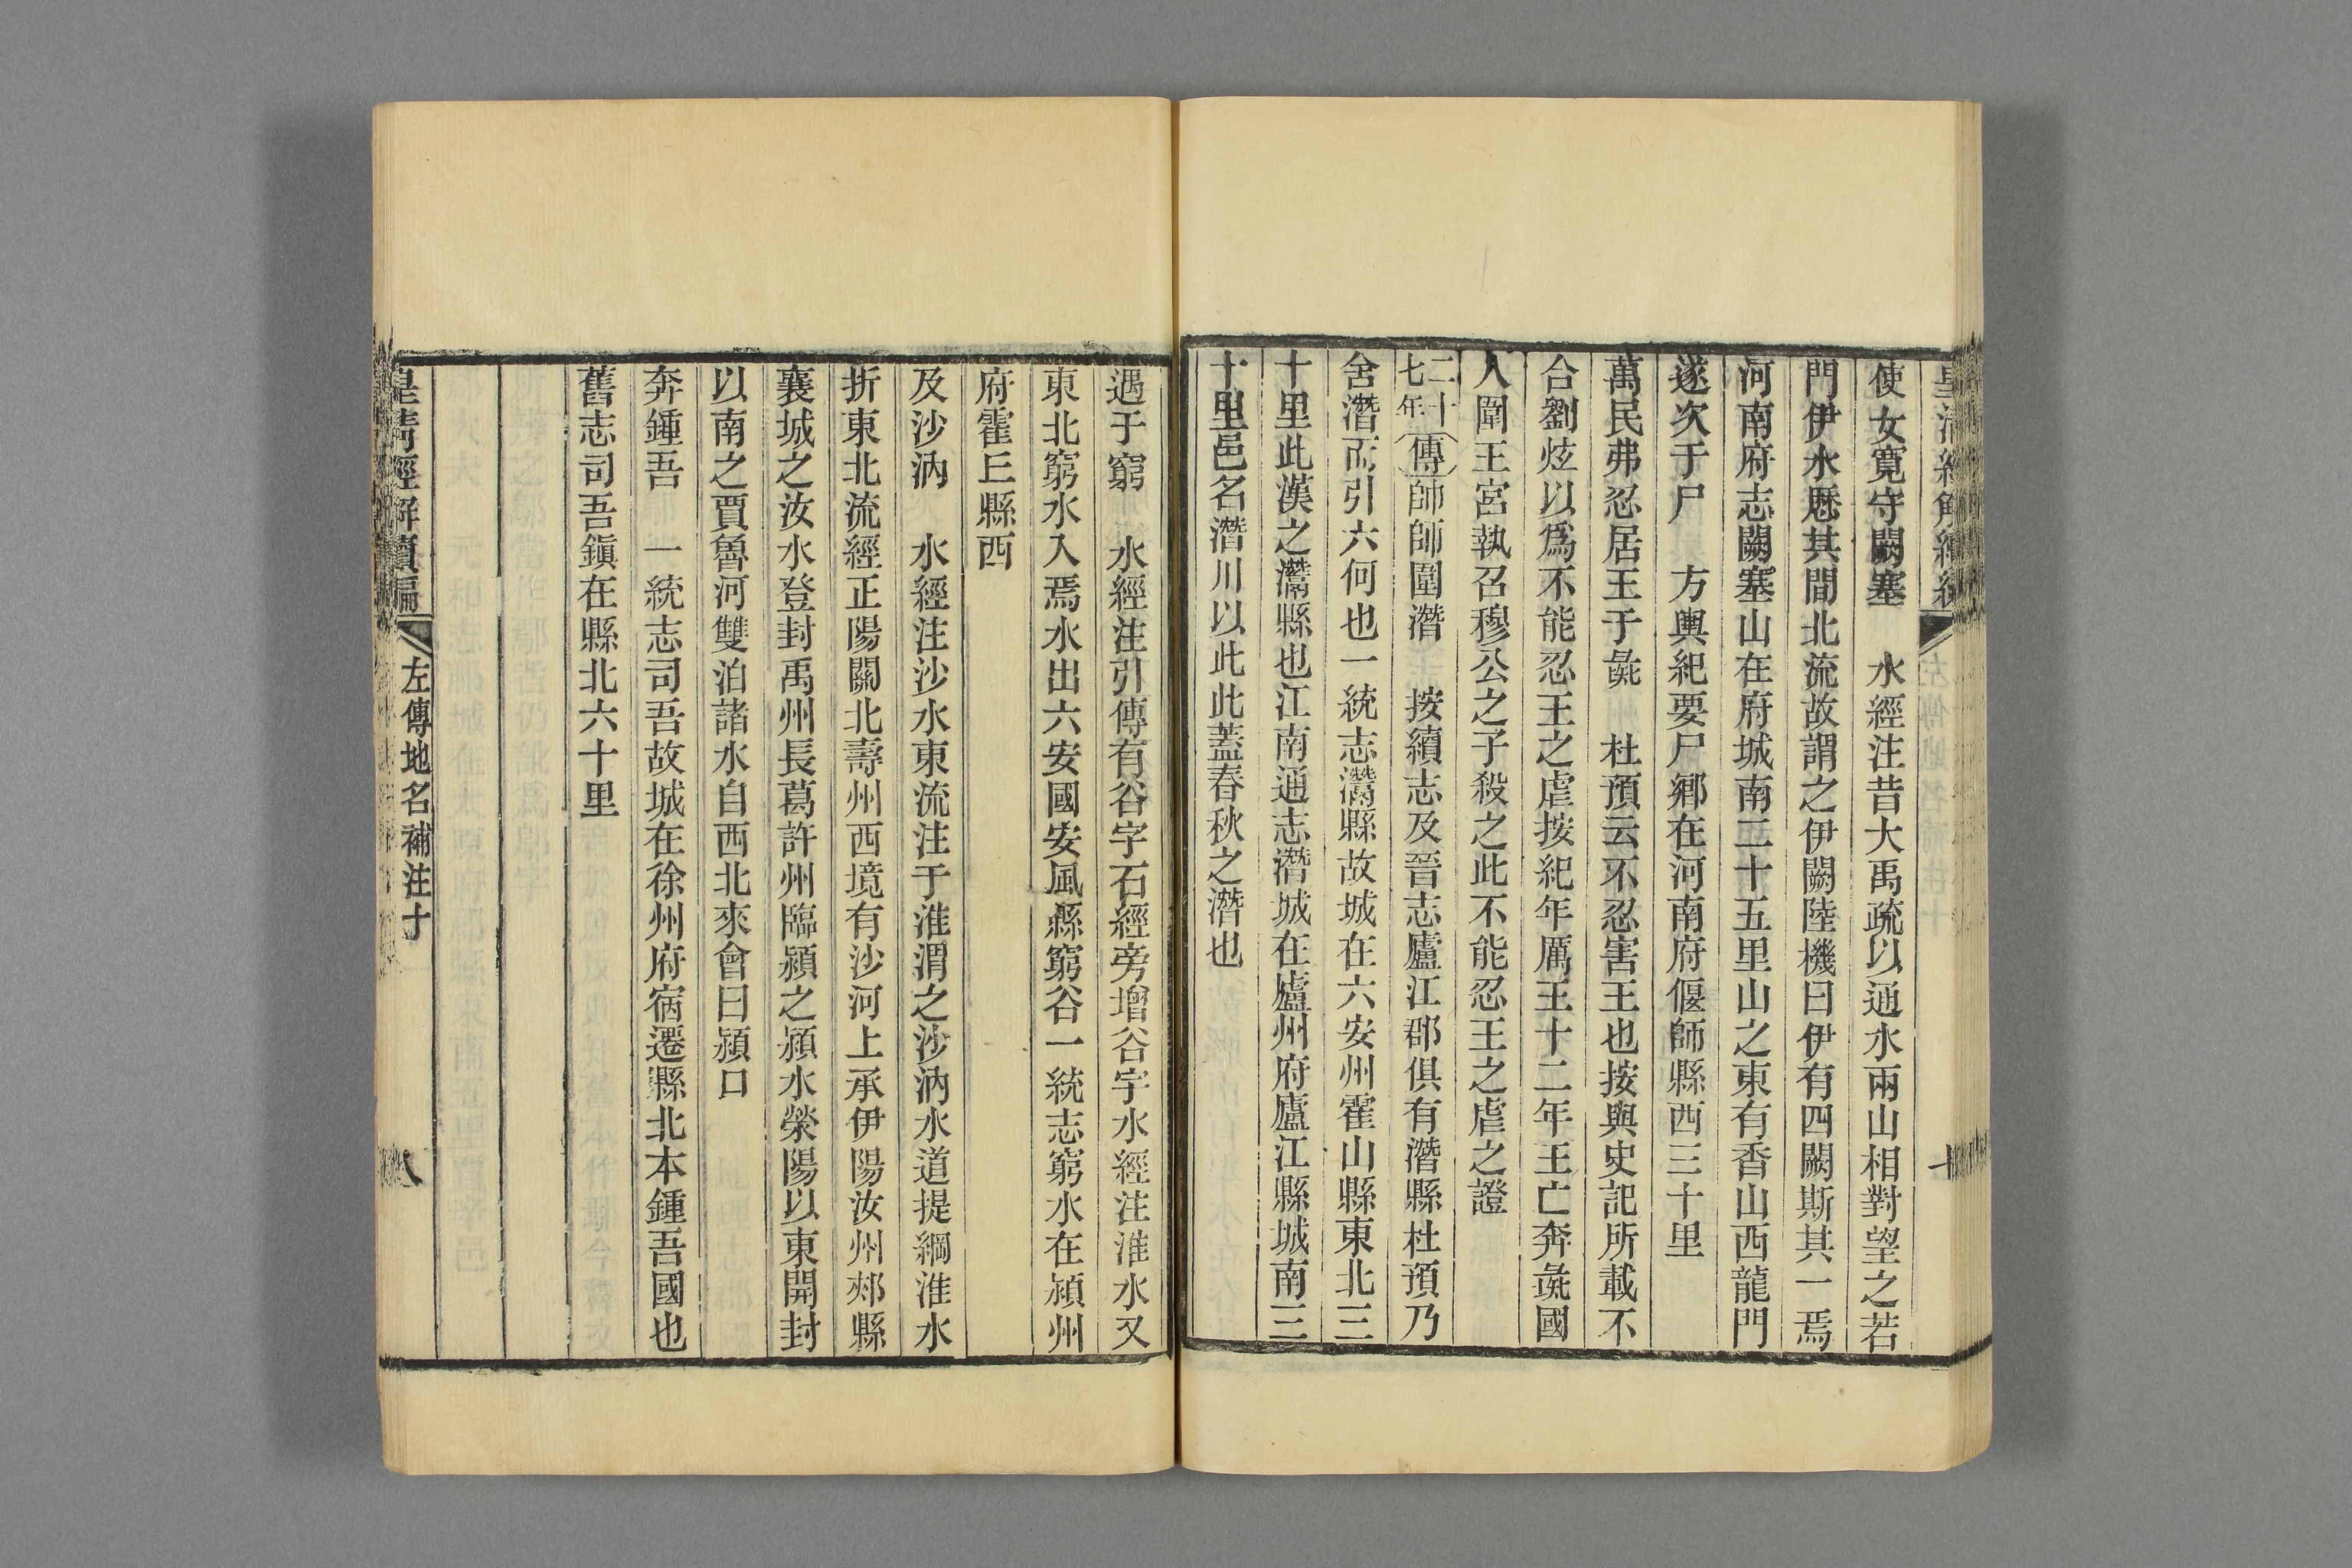 使女寬守闕塞　水經注昔大禹疏以通水兩山相對望之若
門伊水歷其間北流故謂之伊闕陸機曰伊有四闕斯其一焉
河南府志闕塞山在府城南二十五里山之東有香山西龍門
遂次于尸　方輿紀要尸鄉在河南府偃師縣西三十里
萬民弗忍居王于彘　杜預云不忍害王也按與史記所載不
合劉炫以爲不能忍王之虐按紀年厲王十二年王亡奔彘國
人圍王宮執召穆公之子殺之此不能忍王之虐之證
二十七年傳帥師圍潛　按續志及晉志廬江郡俱有潛縣杜預乃
舍潛而引六何也一統志灊縣故城在六安州霍山縣東北三
十里此漢之灊縣也江南通志潛城在廬州府廬江縣城南三
十里邑名潛川以此此蓋春秋之潛也
遇于窮　水經注引傳有谷字石經旁增谷字水經注淮水又
東北窮水入焉水出六安國安風縣窮谷一統志窮水在潁州
府霍丘縣西
及沙汭　水經注沙水東流注于淮謂之沙汭水道提綱淮水
折東北流經正陽關北壽州西境有沙河上承伊陽汝州郟縣
襄城之汝水登封禹州長葛許州臨潁之潁水滎陽以東開封
以南之賈魯河雙洎諸水自西北來會曰潁口
奔鍾吾　一統志司吾故城在徐州府宿遷縣北本鍾吾國也
舊志司吾鎭在縣北六十里
皇清經解續編　左傳地名補注十　八